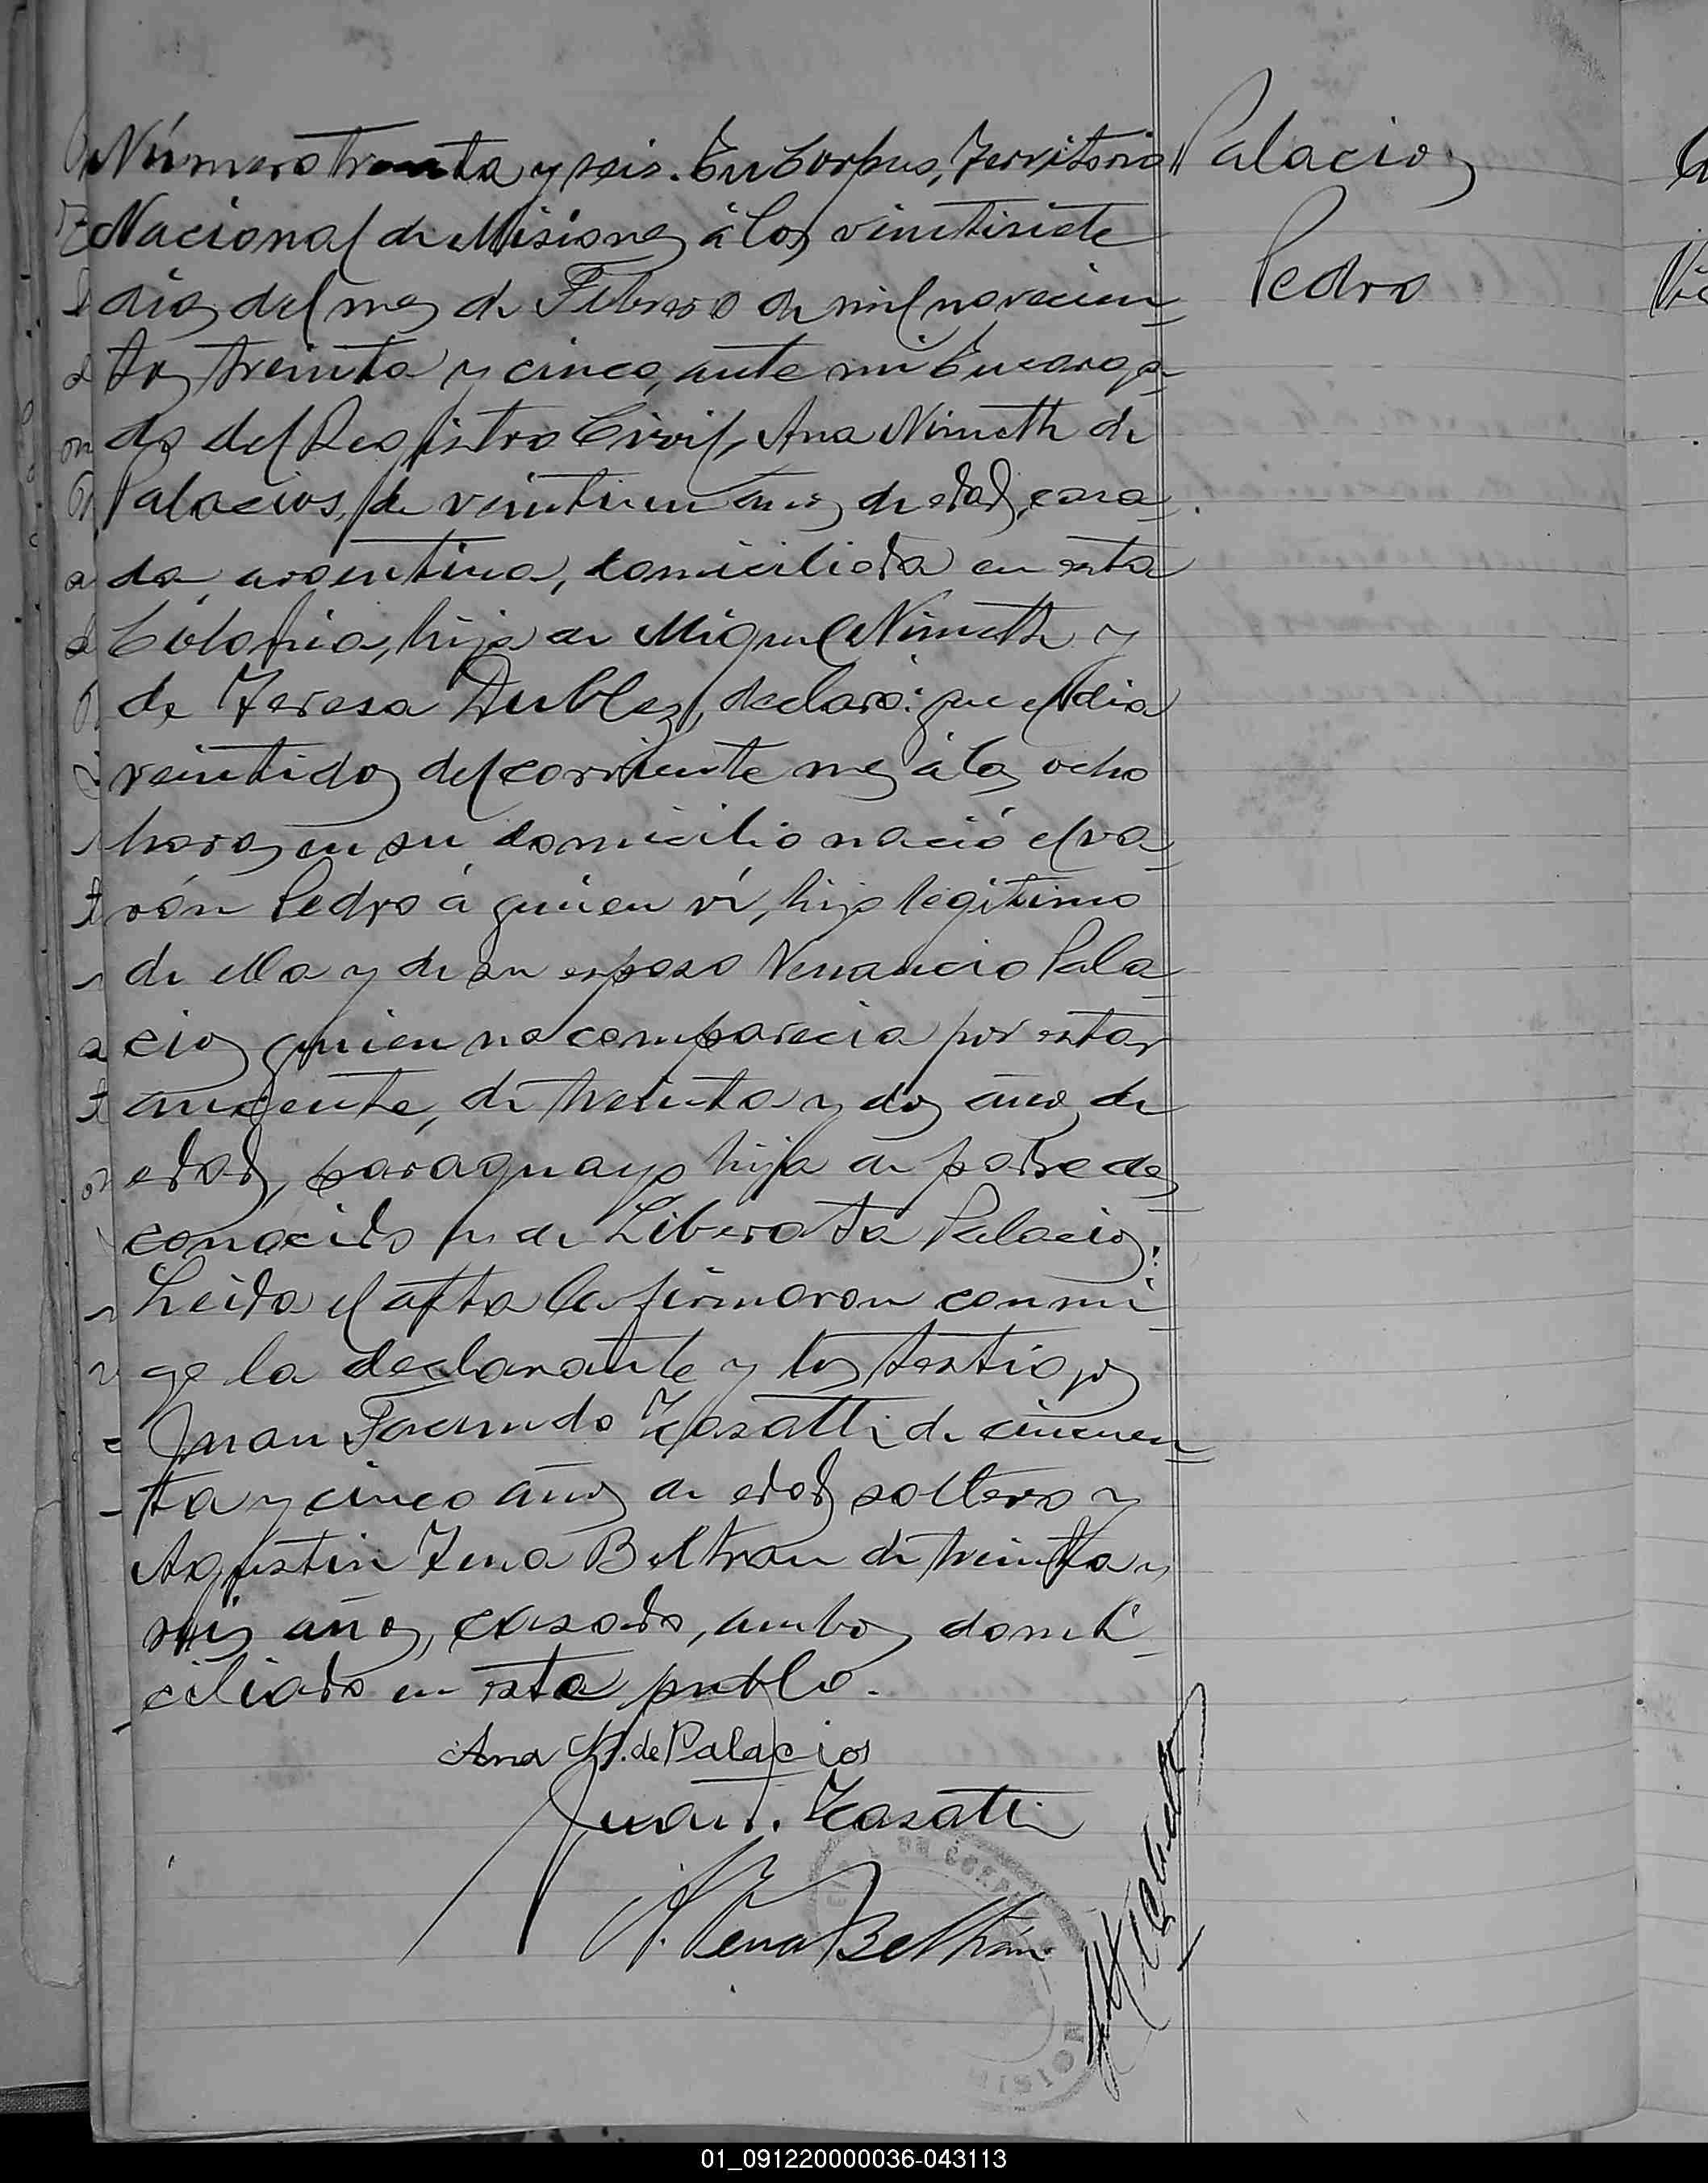 Número treinta y seis. En Corpus, Territorio
Nacional de Misiones á los veintisiete
dias del mes de Febrero de mil novecien
tos treinta y cinco, ante mi Encarga
do del Registro Civil, Ana Nimeth de
Palacios, de veintiun años de edad, casa
da, argentina, domiciliada en esta
Colonia, hija de Miguel Nimeth y
de Teresa Dublez, declaró: que el dia
veintidos del corriente mes á las ocho
horas en su domicilio nació el va
rón Pedro á quien ví, hijo legítimo
de ella y de su esposo Venancio Pala
cios quien no comparecia por estar
ausente, de treinta y dos años de
edad, paraguayo hijo de padre des
conocido y de Liberata Palacios.
Leida el acta la firmaron conmi
go la declarante y los testigos
Juan Facundo Zasatti de cincuen
ta y cinco años de edad soltero y
Agustin Tena Beltran de treinta y
seis años, casado, ambos domi
ciliado en este pueblo.
Ana N. de Palacios
Juan F. Zasatti
A. Tena Beltrán
Palacios
Pedro
01_091220000036-043113